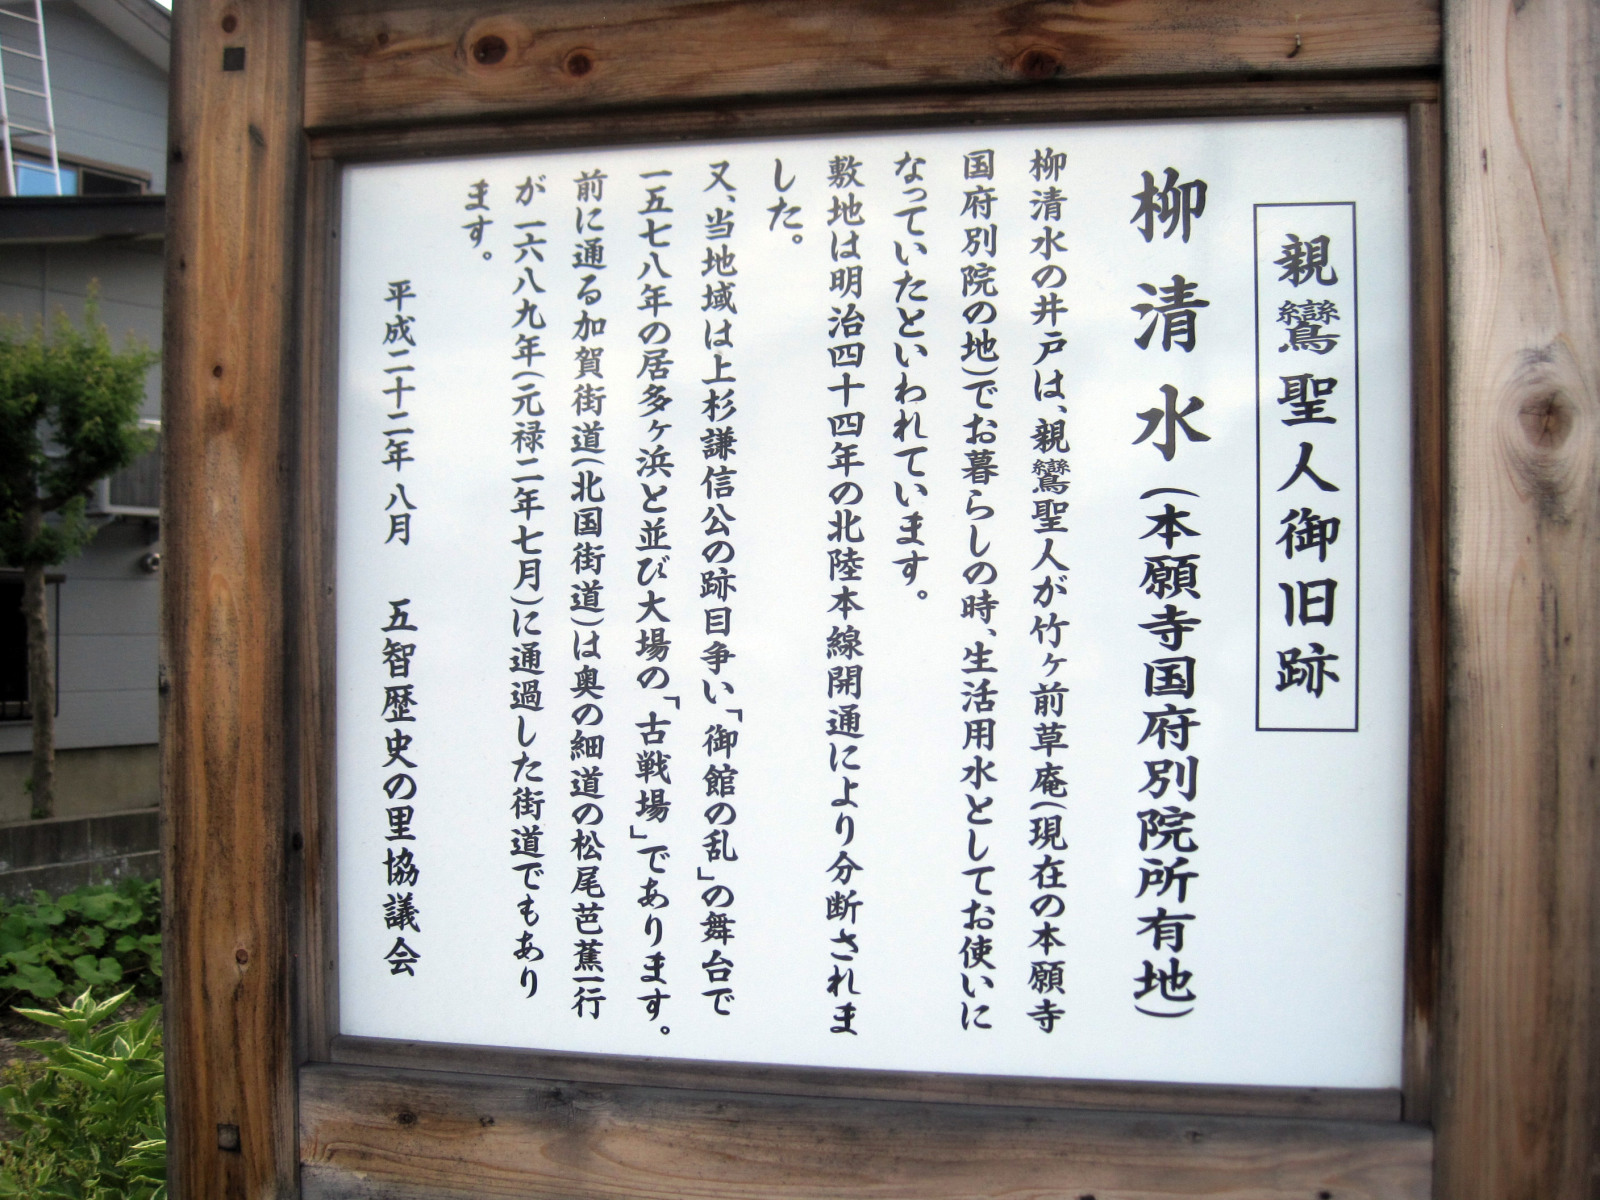 親鸞聖人御旧跡
柳清水（本願寺国府別院所有地）
柳清水の井戸は、親鸞聖人が竹ヶ前草庵（現在の本願寺
国府別院の地）でお暮らしの時、生活用水としてお使いに
なっていたといわれています。
敷地は明治四十四年の北陸本線開通により分断されま
した。
又、当地域は上杉謙信公の跡目争い「御館の乱」の舞台で
一五七八年の居多ヶ浜と並び大場の「古戦場」であります。
前に通る加賀街道（北国街道）は奥の細道の松尾芭蕉一行
が一六八九年（元禄二年七月）に通過した街道でもあり
ます。
平成二十二年八月　五智歴史の里協議会